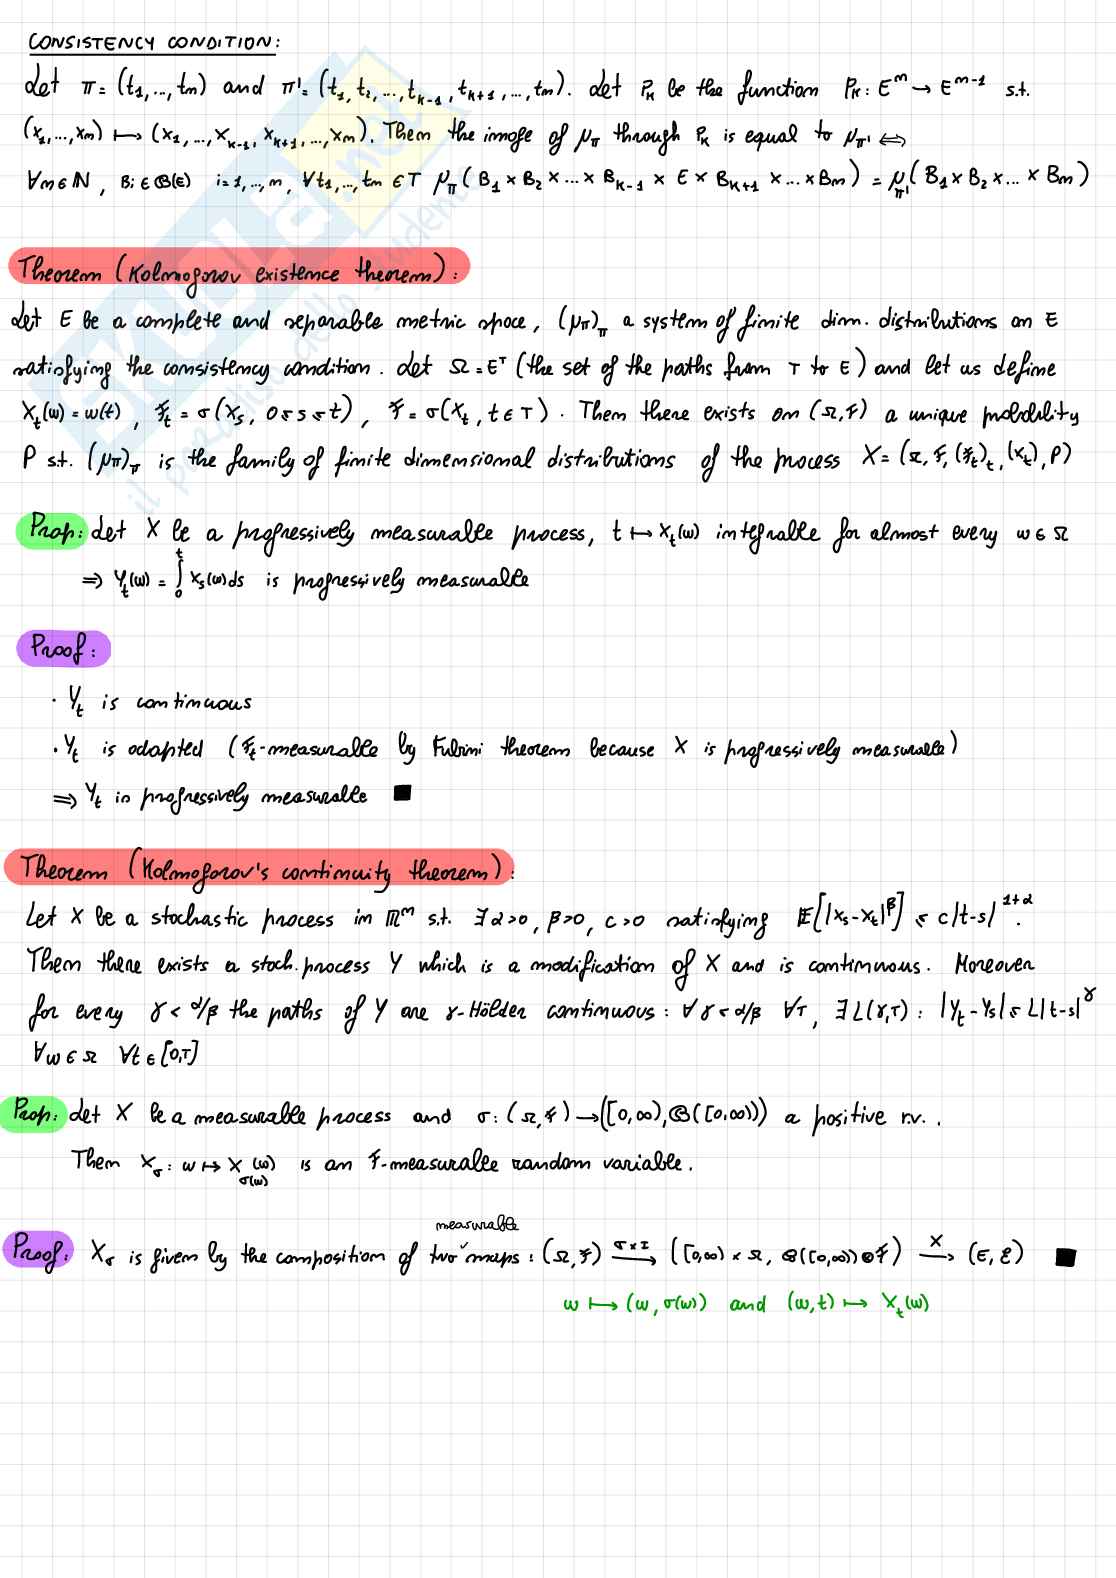 CONSISTENCY CONDITION:
Let π = (t₁,...,tn) and π' = (t₁, t₂,..., t_{k-1}, t_{k+1},..., tn). Let P_k be the function P_k : Eⁿ → Eⁿ⁻¹ s.t.
(x₁,...,xn) ↦ (x₁,..., x_{k-1}, x_{k+1},..., xn). Then the image of μ_π through P_k is equal to μ_π' ⇔
∀n∈ℕ, Bi ∈ 𝓑(E) i=1,..,n, ∀t₁,...,tn ∈ T μ_π(B₁ × B₂ × ... × B_{k-1} × E × B_{k+1} × ... × Bn) = μ_π'(B₁ × B₂ × ... × Bn)
Theorem (Kolmogorov existence theorem):
Let E be a complete and separable metric space, (μ_π)_π a system of finite dim. distributions on E
satisfying the consistency condition. Let Ω = E^T (the set of the paths from T to E) and let us define
X_t(ω) = ω(t), 𝓕_t = σ(X_s, 0≤s≤t), 𝓕 = σ(X_t, t∈T). Then there exists on (Ω,𝓕) a unique probability
P s.t. (μ_π)_π is the family of finite dimensional distributions of the process X = (Ω, 𝓕, (𝓕_t)_t, (X_t), P)
Prop: Let X be a progressively measurable process, t ↦ X_t(ω) integrable for almost every ω ∈ Ω
⇒ Y_t(ω) = ∫₀ᵗ X_s(ω) ds is progressively measurable
Proof:
· Y_t is continuous
· Y_t is adapted (𝓕_t-measurable by Fubini theorem because X is progressively measurable)
⇒ Y_t is progressively measurable ■
Theorem (Kolmogorov's continuity theorem):
Let X be a stochastic process in ℝᵐ s.t. ∃ α>0, β>0, c>0 satisfying 𝔼[|X_s-X_t|^β] ≤ c|t-s|^{1+α}.
Then there exists a stoch. process Y which is a modification of X and is continuous. Moreover
for every γ < α/β the paths of Y are γ-Hölder continuous: ∀γ < α/β ∀T, ∃ L(γ,T): |Y_t-Y_s| ≤ L|t-s|^γ
∀ω∈Ω ∀t∈[0,T]
Prop: Let X be a measurable process and σ: (Ω,𝓕) → ([0,∞), 𝓑([0,∞))) a positive r.v..
Then X_σ : ω ↦ X_{σ(ω)}(ω) is an 𝓕-measurable random variable.
measurable
Proof: X_σ is given by the composition of two ˅ maps: (Ω,𝓕) —σ×I→ ([0,∞) × Ω, 𝓑([0,∞)) ⊗ 𝓕) —X→ (E, 𝓔) ■
ω ↦ (ω, σ(ω)) and (ω,t) ↦ X_t(ω)